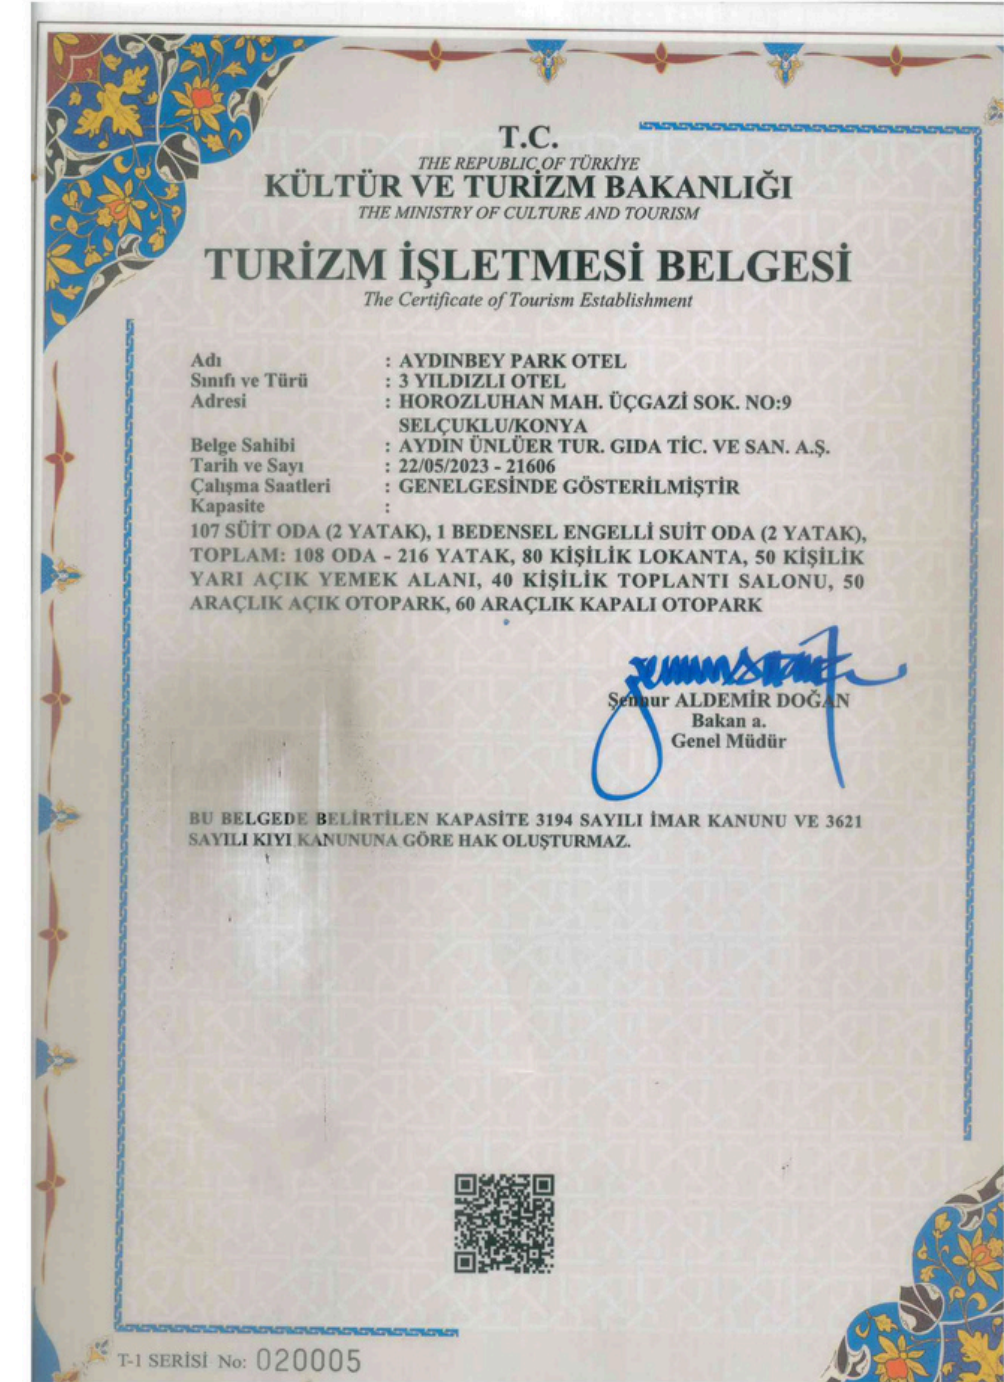 T.C.
THE REPUBLIC OF TÜRKİYE
KÜLTÜR VE TURİZM BAKANLIĞI
THE MINISTRY OF CULTURE AND TOURISM
TURİZM İŞLETMESİ BELGESİ
The Certificate of Tourism Establishment
Adı : AYDINBEY PARK OTEL
Sınıfı ve Türü : 3 YILDIZLI OTEL
Adresi : HOROZLUHAN MAH. ÜÇGAZİ SOK. NO:9
SELÇUKLU/KONYA
Belge Sahibi : AYDIN ÜNLÜER TUR. GIDA TİC. VE SAN. A.Ş.
Tarih ve Sayı : 22/05/2023 - 21606
Çalışma Saatleri : GENELGESİNDE GÖSTERİLMİŞTİR
Kapasite :
107 SÜİT ODA (2 YATAK), 1 BEDENSEL ENGELLİ SUİT ODA (2 YATAK),
TOPLAM: 108 ODA - 216 YATAK, 80 KİŞİLİK LOKANTA, 50 KİŞİLİK
YARI AÇIK YEMEK ALANI, 40 KİŞİLİK TOPLANTI SALONU, 50
ARAÇLIK AÇIK OTOPARK, 60 ARAÇLIK KAPALI OTOPARK
Şennur ALDEMİR DOĞAN
Bakan a.
Genel Müdür
BU BELGEDE BELİRTİLEN KAPASİTE 3194 SAYILI İMAR KANUNU VE 3621
SAYILI KIYI KANUNUNA GÖRE HAK OLUŞTURMAZ.
T-1 SERİSİ No: 020005